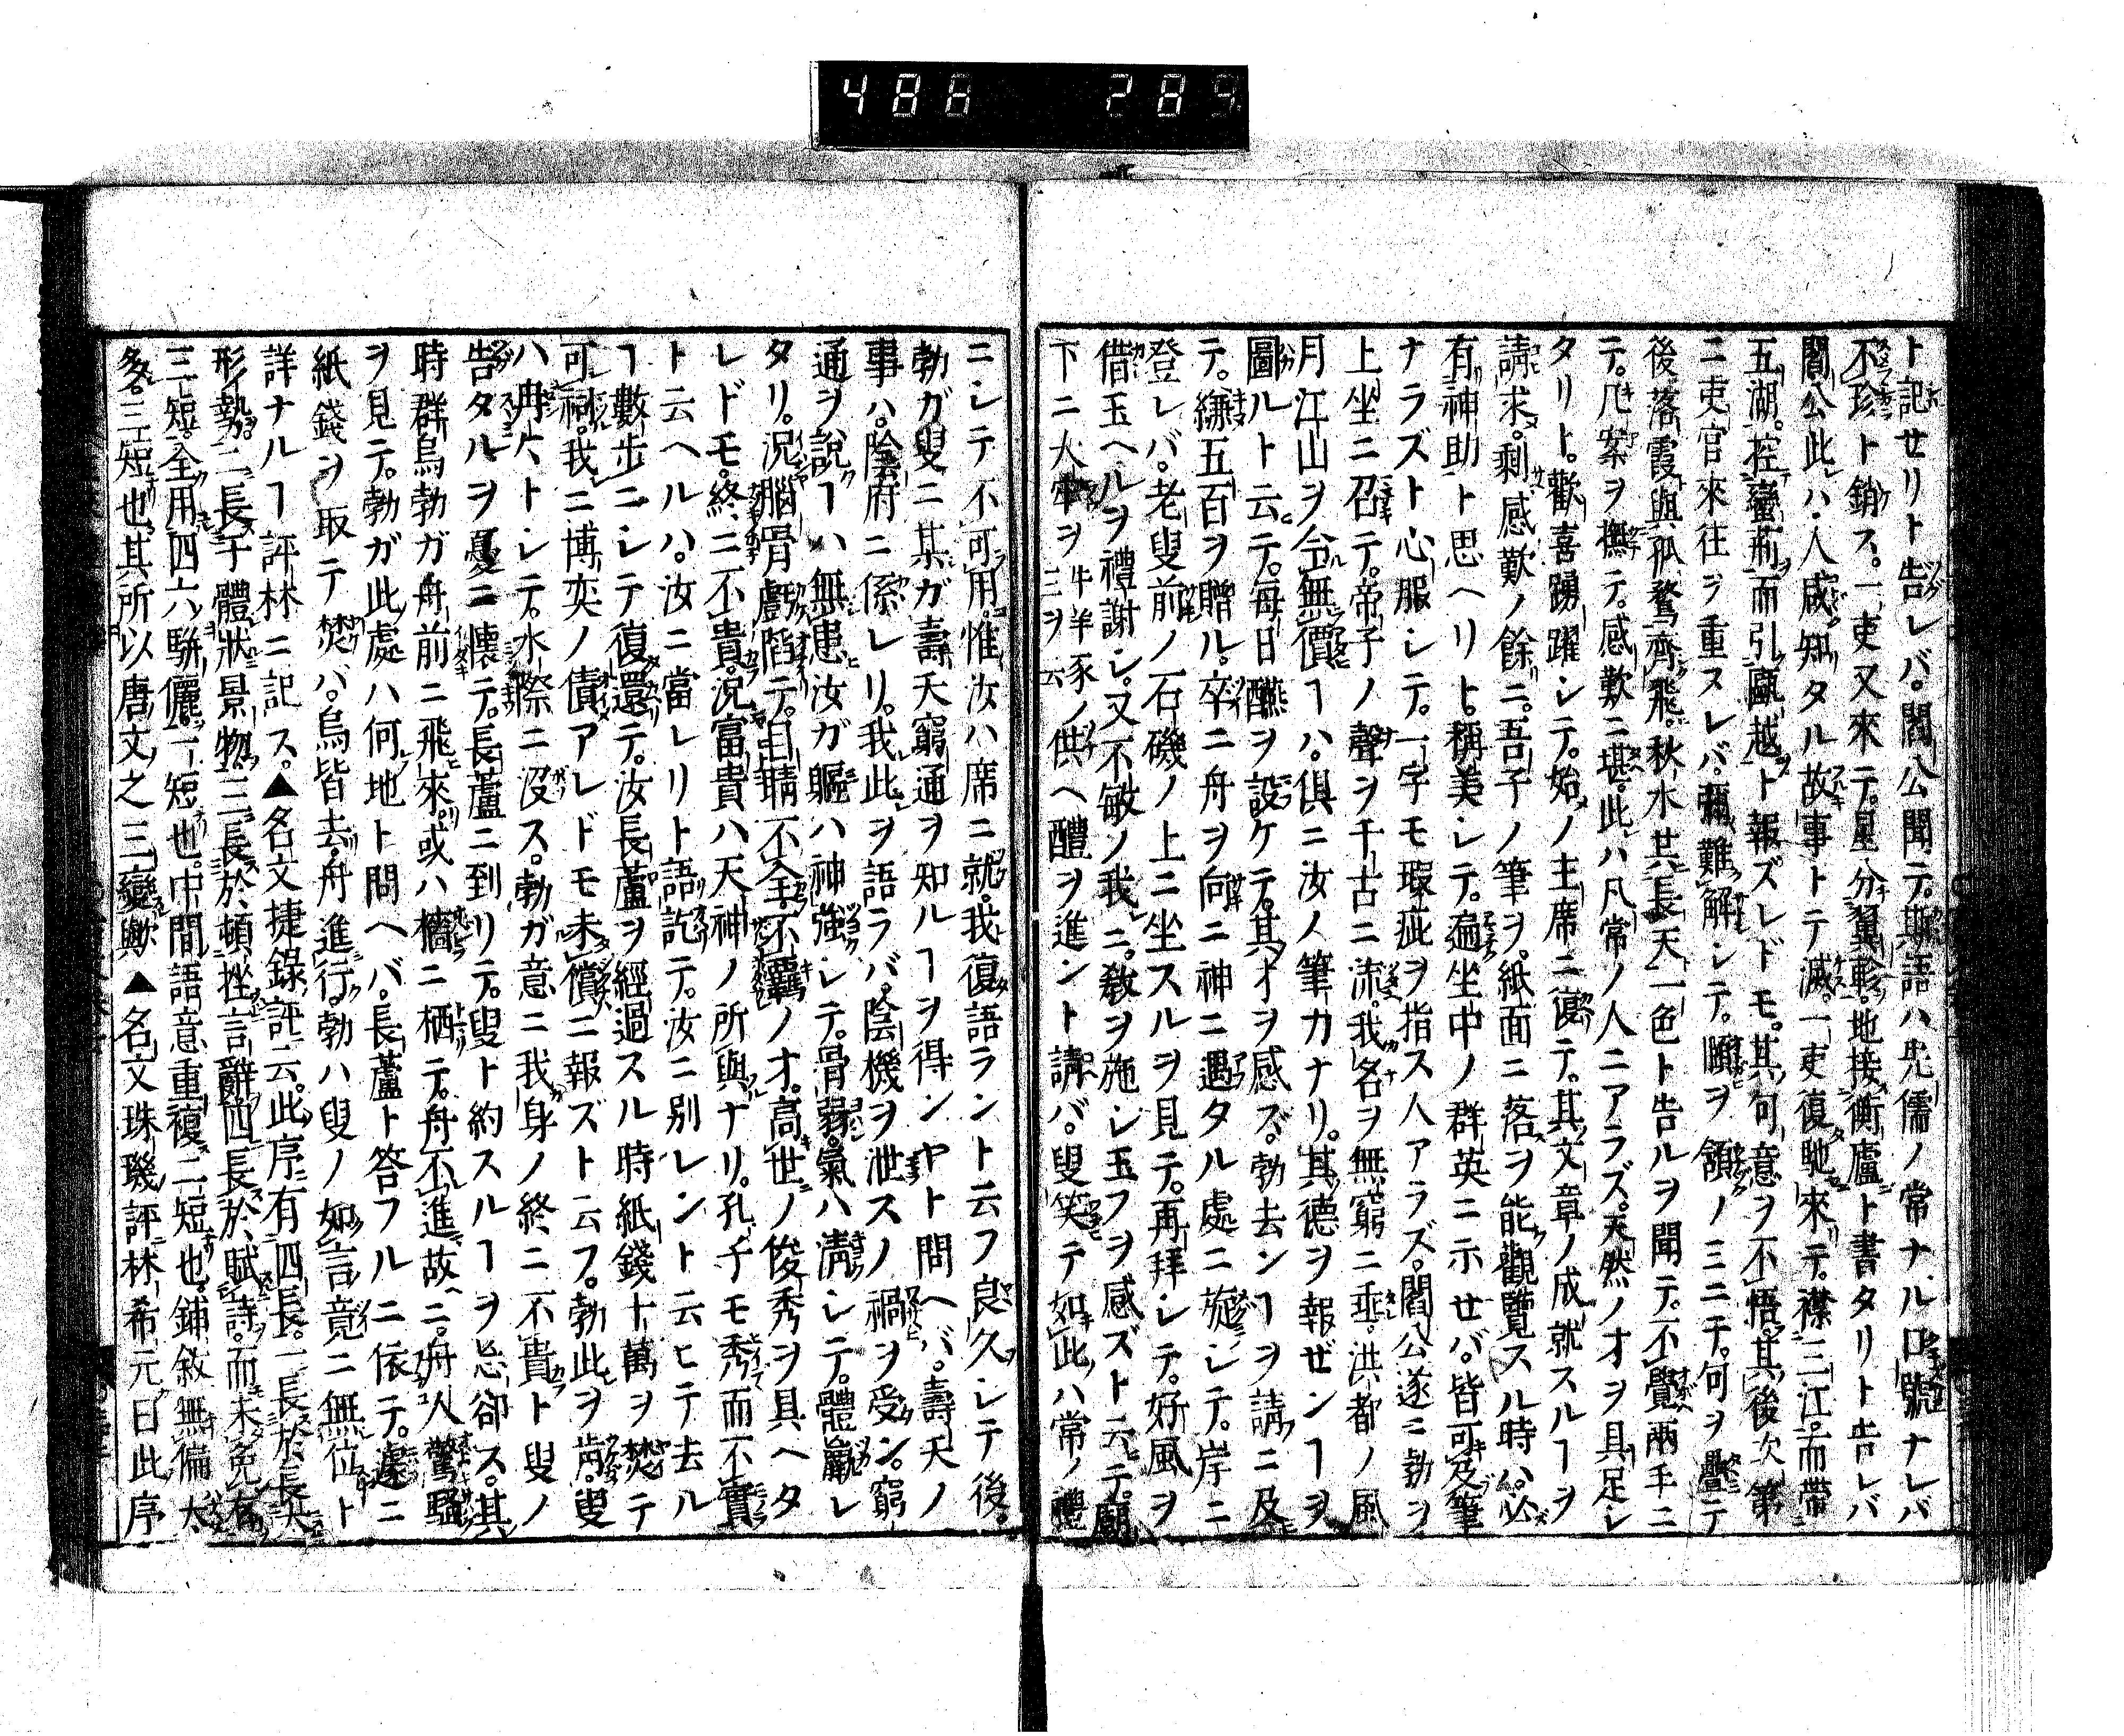 488 289
ト記セリト告レバ。閻公聞テ。斯語ハ先儒ノ常ナル口號ナレバ
不珍ト銷ス。一吏又來テ。星分翼軫。地接衡廬ト書タリト告レバ
閻公此ハ人咸知タル故事トテ滅。一吏復馳來テ。襟三江。而帶
五湖。控蠻荊而引甌越ト報ズレドモ。其句意ヲ不悟。其後次第
ニ吏官來往ヲ重スレバ。彌難解シテ。頤ヲ頷ノミニテ。何ヲ疊テ
後落霞與孤鶩齊飛。秋水共長天一色ト告ルヲ聞テ。不覺兩手ニ
テ。几案ヲ撫テ。感歎ニ堪。此ハ凡常ノ人ニアラズ。天然ノオヲ具足シ
タリト。歡喜踴躍シテ。始ノ主席ニ復テ。其文章ノ成就スルヿヲ
請求。剩感歎ノ餘ニ。吾子ノ筆ヲ。紙面ニ落ヲ能觀覽スル時ハ。必
有神助ト思ヘリト。稱美シテ。遍坐中ノ群英ニ示セバ。皆可及筆
ナラズト心服シテ。一字モ瑕疵ヲ指ス人アラズ。閻公遂ニ勃ヲ
上坐ニ召テ。帝子ノ聲ヲ千古ニ流。我名ヲ無窮ニ垂。洪都ノ風
月江山ヲ令無價ヿハ。倶ニ汝ノ筆カナリ。其德ヲ報ゼンヿヲ
圖ルト云テ。毎日醼ヲ設ケテ。其オヲ感ズ。勃去ンヿヲ請ニ及
テ。縑五百ヲ贈ル。卒ニ舟ヲ向ニ神ニ遇タル處ニ施シテ。岸ニ
登レバ。老叟前ノ石磯ノ上ニ坐スルヲ見テ。再拜シテ。好風ヲ
借玉ヘルヲ禮謝シ。又不敏ノ我ニ。敎ヲ施シ玉フヲ感ズト云テ。廟
下ニ大牢ヲ牛羊豕ノ三ヲ云供ヘ醴ヲ進ント請バ。叟笑テ如此ハ常ノ禮
ニシテ不可用。惟汝ハ席ニ就。我復語ラント云フ良久シテ後。
勃ガ叟ニ某ガ壽夭窮通ヲ知ルヿヲ得ンヤト問ヘバ。壽夭ノ
事ハ。陰府ニ係レリ。我此ヲ語ラバ。陰機ヲ泄スノ禍ヲ受ン。窮
通ヲ說ヿハ無患汝ガ軀ハ神強シテ。骨弱。氣ハ淸シテ。體羸シ
タリ。況腦骨虧陷テ。目睛不全。不羈ノオ。高世ノ俊秀ヲ具ヘタ
レドモ。終ニ不貴。況富貴ハ天神ノ所與ナリ。孔子モ秀而不實
ト云ヘルハ。汝ニ當レリト語訖テ。汝ニ別レント云ヒテ去ル
ヿ數步ニシテ復還テ。汝長蘆ヲ經過スル時紙錢十萬ヲ焚テ
可祠。我ニ博奕ノ債アレドモ未償ニ報ズト云フ。勃此ヲ肯。叟
ハ冉々トシテ。水際ニ沒ス。勃ガ意ニ我身ノ終ニ不貴ト叟ノ
告タルヲ憂ニ懷テ。長蘆ニ到リテ。叟ト約スルヿヲ忘卻ス。其
時群烏勃ガ舟前ニ飛來。或ハ檣ニ栖テ。舟不進。故ニ。舟人驚騷
ヲ見テ。勃ガ此處ハ何地ト問ヘバ。長蘆ト答フルニ依テ。遽ニ
紙錢ヲ取テ焚バ。烏皆去。舟進行。勃ハ叟ノ如言竟ニ無位ト
詳ナルヿ評林ニ記ス。▲名文捷錄評云。此序有四長。一長於長天
形勢。二長于體狀景物。三長於頓挫言辭。四長於賦詩。而未免有
三短。全用四六駢儷。一短也。中間語意重複。二短也。鋪敘無偏大
多。三短也。其所以唐文之三變歟▲名文珠璣評林。希元曰此序